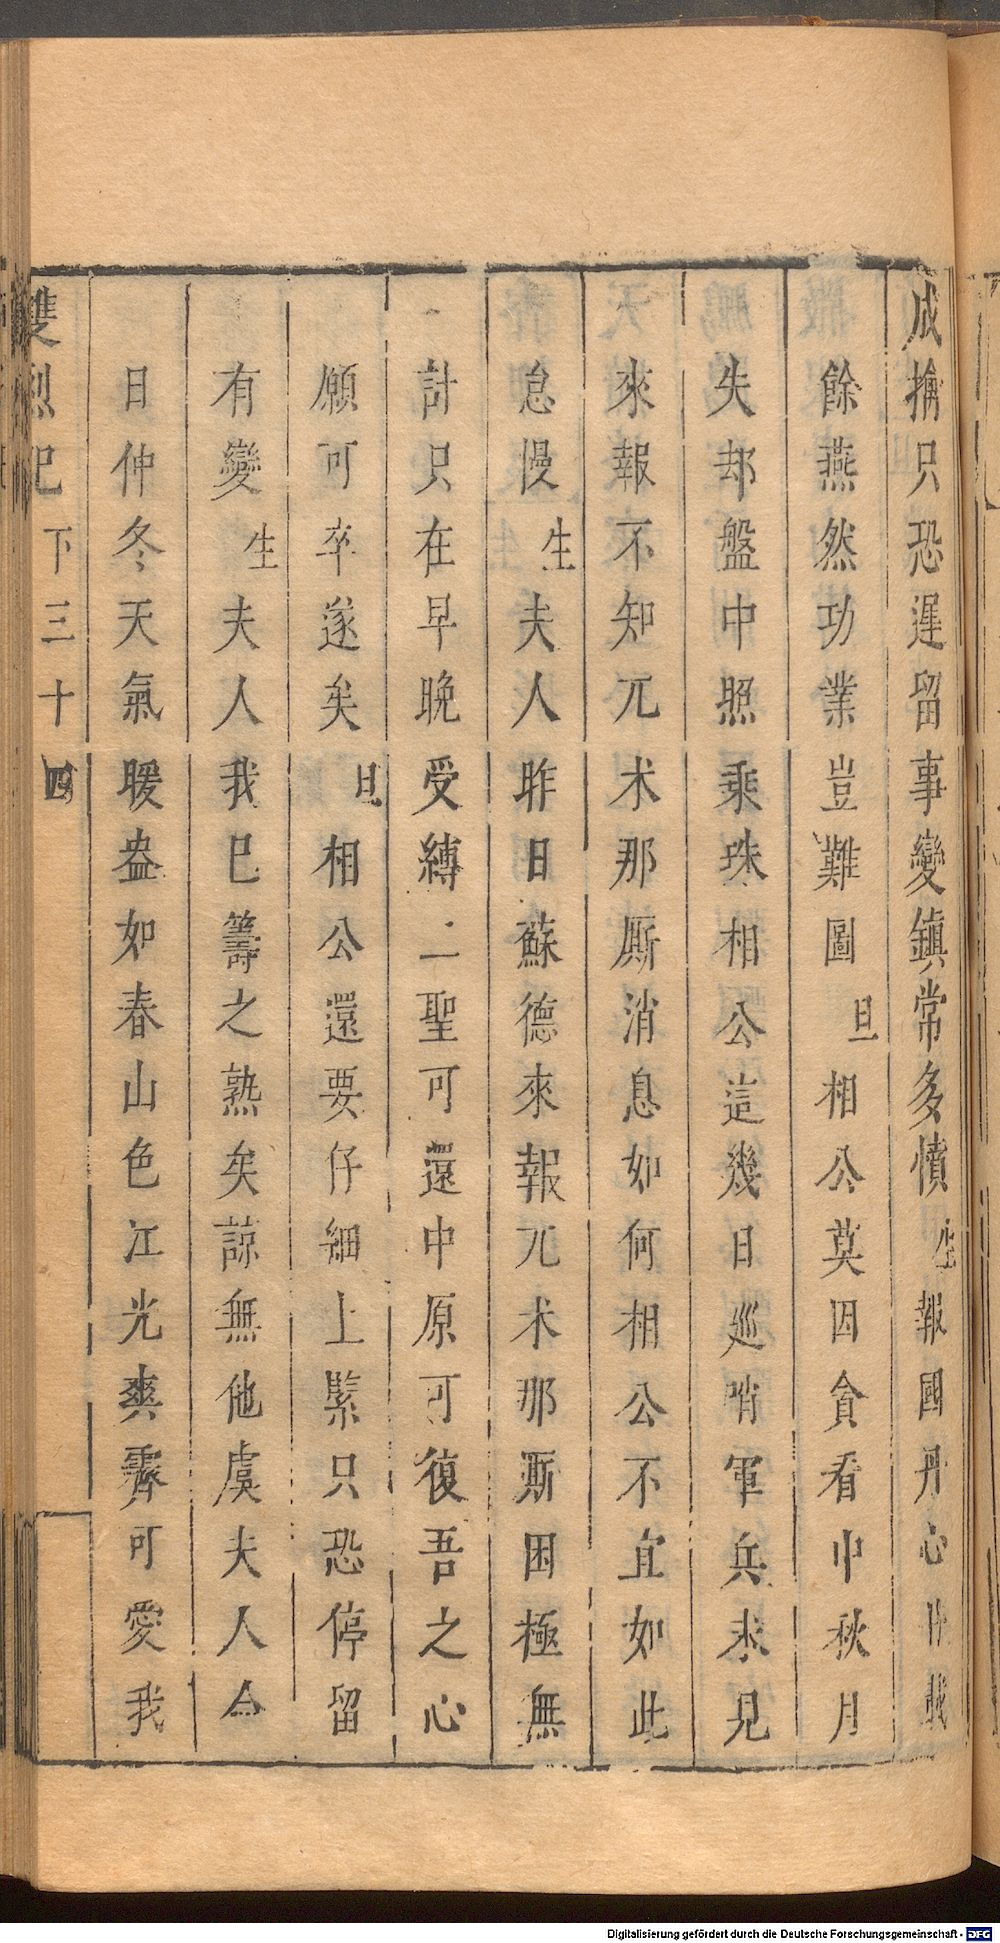 成擒只恐遲留事變鎮常多憤生報國丹心
餘燕然功業豈難圖旦相公莫因貪看中秋月
失却盤中照乘珠相公這幾日巡哨軍兵未見
來報不知兀术那厮消息如何相公不宜如此
怠慢生夫人昨日蘇德來報兀术那厮困極無
計只在早晚受縛二聖可還中原可復吾之心
願可卒遂矣旦相公還要仔細上緊只恐停留
有變生夫人我已籌之熟矣諒無他虞夫人今
日仲冬天氣暖盎如春山色江光爽霽可愛我
雙烈记 下三十四
Digitalisierung gefördert durch die Deutsche Forschungsgemeinschaft - DFG